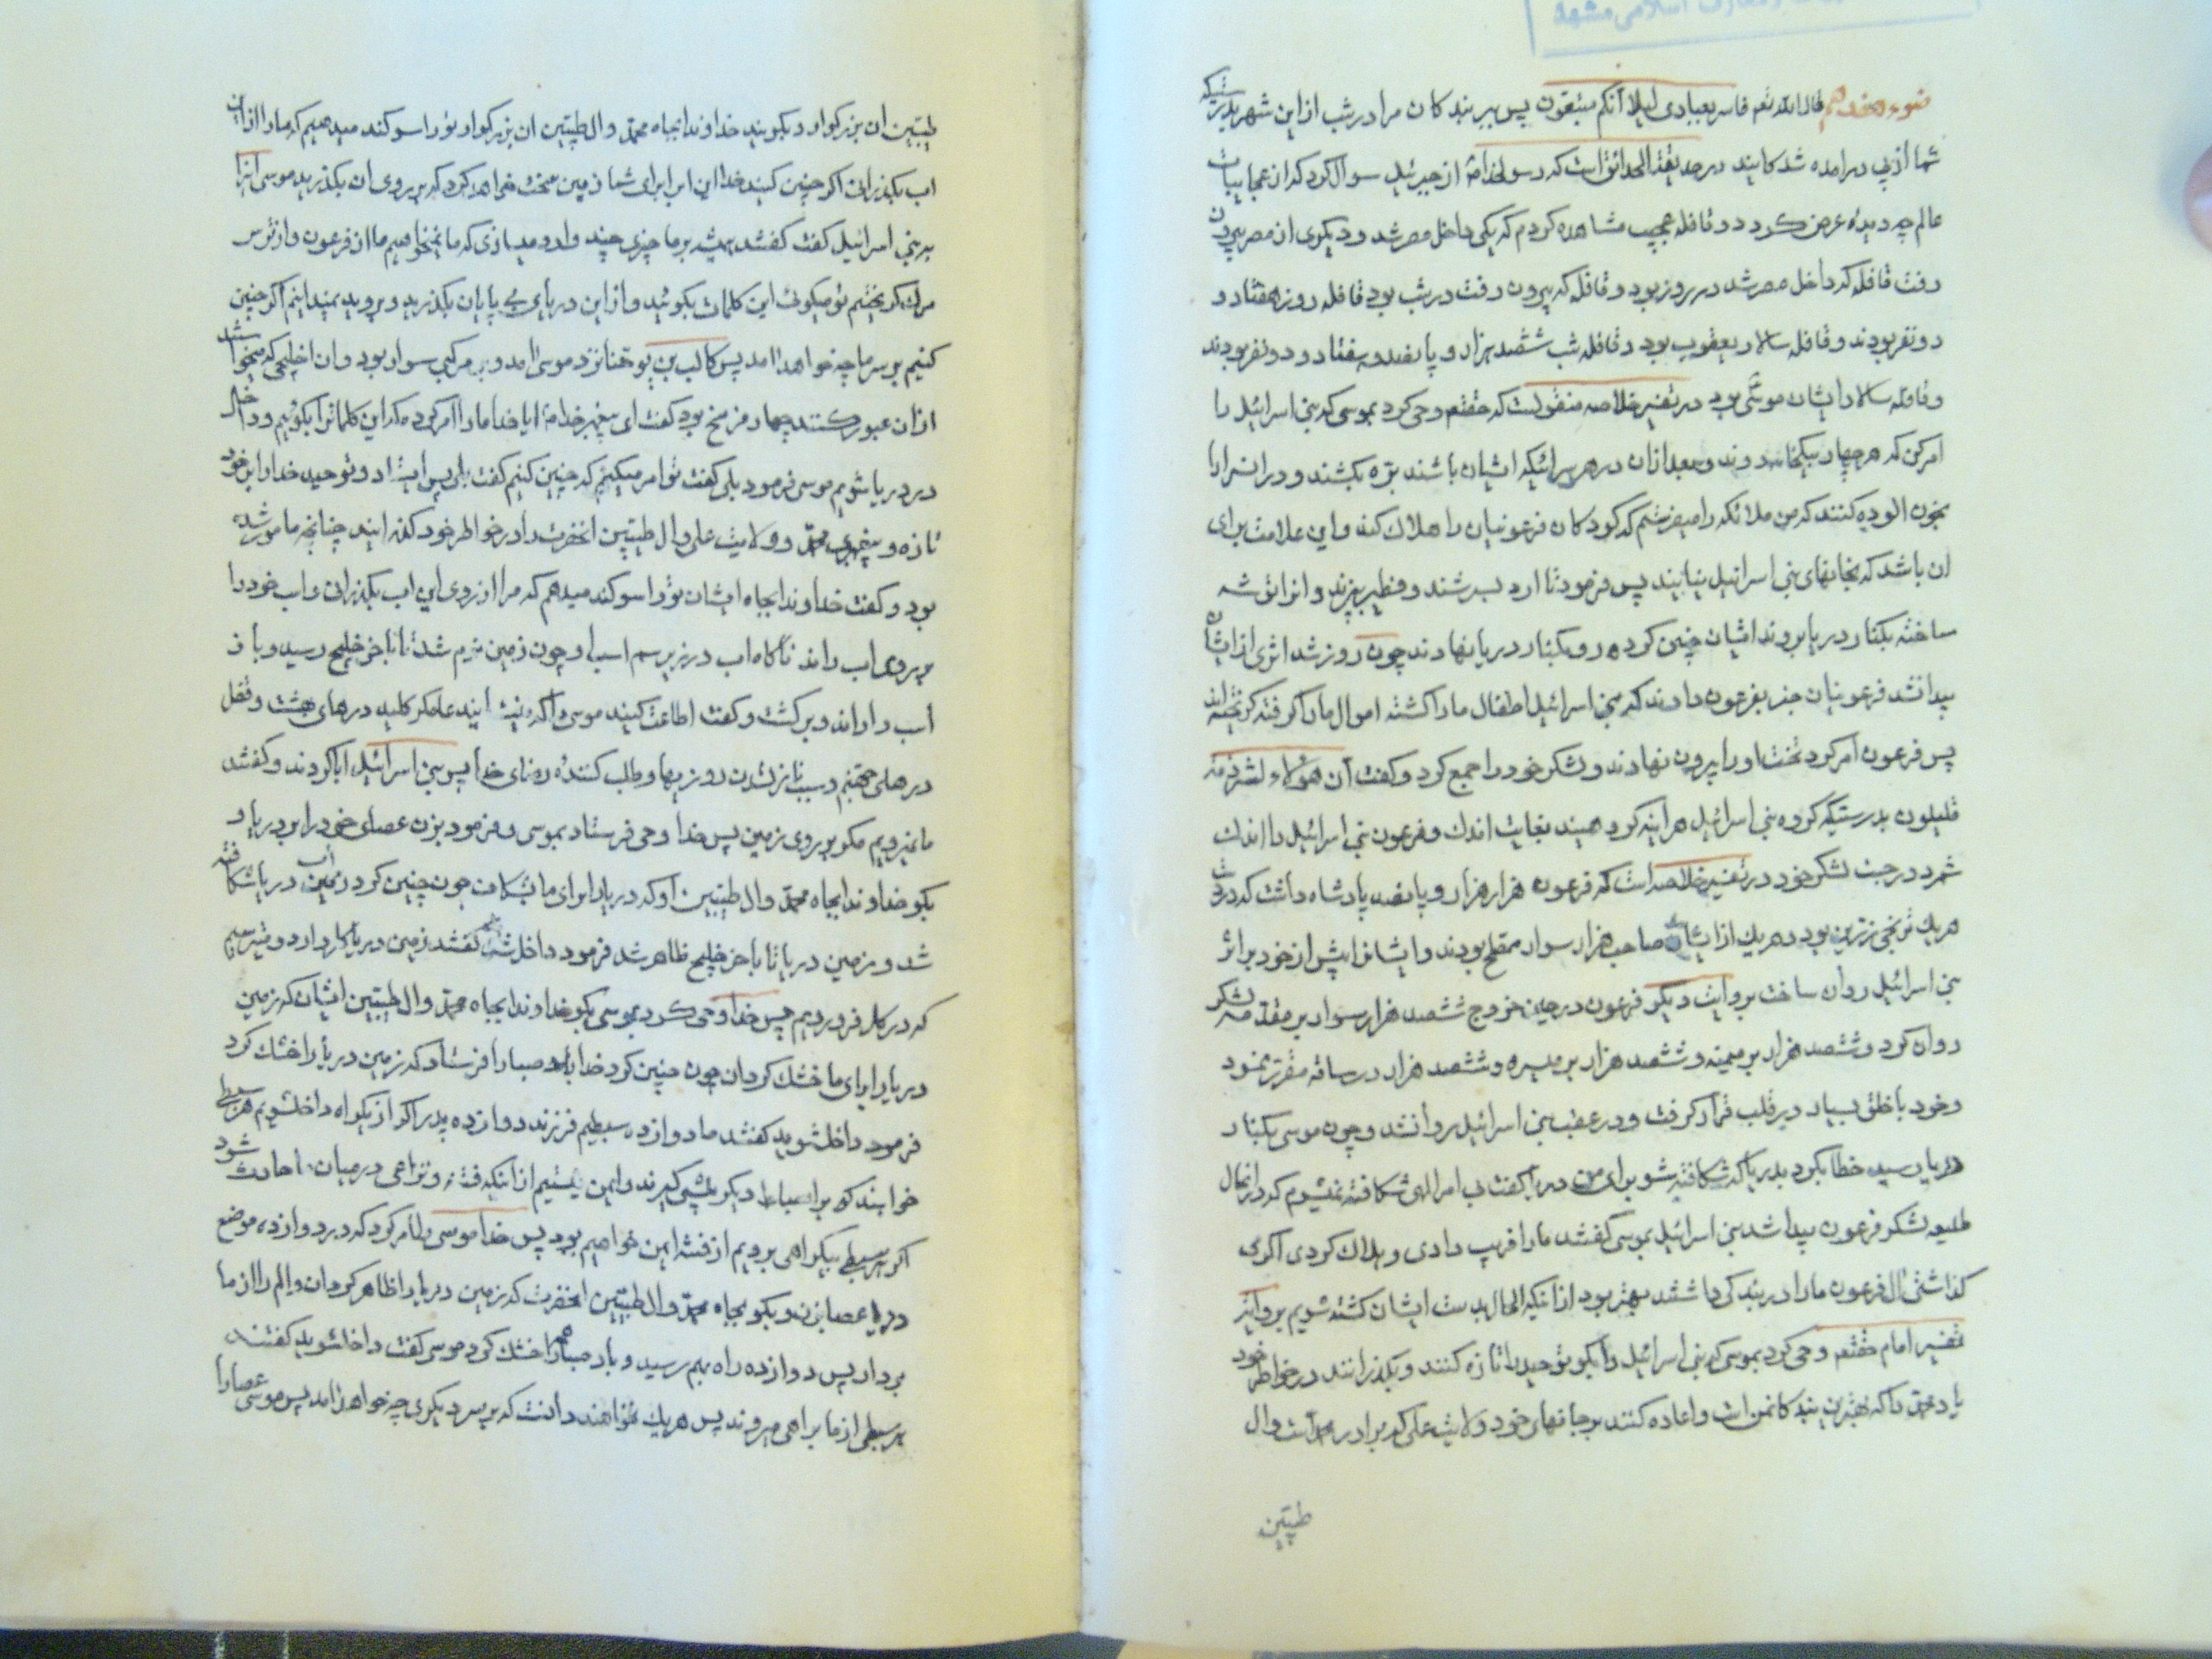 ضوء هفدهم قال الله تعم فاسر بعبادی لیلا انکم متبعون پس ببر بندکان مرا در شب از این شهر بدرستیکه
شما از پی درامده شدکانید در حدیقة الحدائق است که رسولخدا از جبرئیل سوال کرد که از عجایبات
عالم چه دیدهٔ عرض کرد دو قافله عجیب مشاهده کردم که یکی داخل مصر شد و دیکری از مصر بیرون
رفت قافله که داخل مصر شد در روز بود و قافله که بیرون رفت در شب بود قافله روز هفتاد و
دو نفر بودند و قافله سالار یعقوب بود و قافله شب ششصد هزار و پانصد و هفتاد و دو نفر بودند
و قافله سالار ایشان موسی بود در تفسیر خلاصه منقولست که حقتعم وحی کرد بموسی که بنی اسرائیل را
امر کن که هر چهار بیکخانه روند و بعد ازان در هر سرائیکه ایشان باشند بره بکشند و در ان سرا را
بخون الوده کنند که من ملائکه را میفرستم که کودکان فرعونیان را هلاک کند و این علامت برای
ان باشد که بخانهای بنی اسرائیل نیایند پس فرمود تا ارد بسرشند و فطیر بپزند و از ان توشه
ساخته بکنار دریا روند ایشان چنین کرده رو بکنار دریا نهادند چون روز شد اثری از ایشان
پیدا نشد فرعونیان خبر بفرعون دادند که بنی اسرائیل اطفال ما را کشته اموال ما را کرفته کریخته اند
پس فرعون امر کرد تخت او را بیرون نهادند و لشکر خود را جمع کرد و کفت ان هؤلاء لشرذمة
قلیلون بدرستیکه کروه بنی اسرائیل هراینه کروهیند بغایت اندک و فرعون بنی اسرائیل را اندک
شمرد در جنب لشکر خود در تفسیر خلاصه است که فرعون هزار هزار و پانصد پادشاه داشت که در دست
هر یک ترنجی زرین بود و هر یک از ایشان صاحب هزار سوار مقلح بودند و ایشانرا پیش از خود بر اثر
بنی اسرائیل روان ساخت بروایت دیکر فرعون در حین خروج ششصد هزار سوار بر مقدمه لشکر
روان کرد و ششصد هزار بر میمنه و ششصد هزار بر میسره و ششصد هزار در ساقه مقرر نمود
و خود با خلق بسیار در قلب قرار کرفت و در عقب بنی اسرائیل روانشد و چون موسی بکنار
دریا رسید خطاب کرد بدریا که شکافته شو برای من دریا کفت بی امر الهی شکافته نمیشوم که در انحال
طلیعه لشکر فرعون پیدا شد بنی اسرائیل بموسی کفتند ما را فریب دادی و هلاک کردی اکر می
کذاشتی ال فرعون ما را در بندکی داشتند بهتر بود از انکه الحال بدست ایشان کشته شویم بروایت
تفسیر امام حقتعم وحی کرد بموسی که بنی اسرائیل را بکو توحید را تازه کنند و بکذرانند در خواطر خود
یاد محمد را که بهترین بندکان منست و اعاده کنند بر جانهای خود ولایت علی که برادر محمد است و ال
طیبین
طیبین ان بزرکوار و بکویند خداوندا بجاه محمد و ال طیبین ان بزرکوار تو را سوکند میدهیم که ما را از این
اب بکذرانی اکر چنین کنید خدا این اب برای شما زمین سخت خواهد کرد که بر روی ان بکذرید موسی انرا
به بنی اسرائیل کفت کفتند همیشه بر ما چیزی چند وارد میسازی که ما نمیخواهیم ما از فرعون و از ترس
مرک کریختیم تو میکوئی این کلمات بکوئید و از این دریای بی پایان بکذرید و بروید نمیدانیم اکر چنین
کنیم بر سر ما چه خواهد امد پس کالب بن یوحنا نزد موسی امد و بر مرکبی سوار بود و ان خلیجی که میخواستند
ازان عبور کنند چهار فرسخ بود کفت ای پیغمبر خدا ایا خدا ما را امر کرده که این کلماترا بکوئیم و داخل
در دریا شویم موسی فرمود بلی کفت تو امر میکنی که چنین کنیم کفت بلی پس ایستاد و توحید خدا را بر خود
تازه و پیغمبری محمد و ولایت علی و ال طیبین انحضرت را در خواطر خود کذرانید چنانچه مامور شده
بود و کفت خداوندا بجاه ایشان تو را سوکند میدهم که مرا از روی این اب بکذرانی و اسب خود را
بر روی اب راند ناکاه اب در زیر سم اسب او چون زمین نرم شد تا باخر خلیج رسید و باز
اسب را راند و برکشت و کفت اطاعت کنید موسی را که نیست ایند عامکر کلید درهای بهشت و قفل
درهای جهنم و سبب نازل شدن روزیها و طلب کنندهٔ رضای خدا پس بنی اسرائیل ابا کردند و کفتند
ما نمیرویم مکر بر روی زمین پس خدا وحی فرستاد بموسی و فرمود بزن عصای خود را بر دریا و
بکو خداوندا بجاه محمد و ال طیبین او که دریا را برای ما بشکاف چون چنین کرد اب دریا شکافته
شد و زمین دریا تا باخر خلیج ظاهر شد فرمود داخل شوید کفتند زمین دریا کل دارد و میترسیم
که در کل فرو رویم پس خدا وحی کرد بموسی بکو خداوندا بجاه محمد و ال طیبین ایشان که زمین
دریا را برای ما خشک کردان چون چنین کرد خدا باد صبا را فرستاد که زمین دریا را خشک کرد
فرمود داخل شوید کفتند ما دوازده سبطیم فرزند دوازده پدر اکر از یکراه داخلشویم هر سبطی
خواهند که بر اسباط دیکر پیشی کیرند و ایمن نیستیم از انکه فتنه و نزاعی در میان ما حادث شود
اکر هر سبطی بیکراهی برویم از فتنه ایمن خواهیم بود پس خدا موسی را امر کرد که در دوازده موضع
دریا عصا بزن و بکو بجاه محمد و ال طیبین انحضرت که زمین دریا را ظاهر کردان و الم را از ما
بردار پس دوازده راه بهم رسید و باد صبا همه را خشک کرد موسی کفت داخلشوید کفتند
هر سبطی از ما براهی میروند پس هر یک نخواهند دانست که بر سر دیکری چه خواهد امد پس موسی عصا را